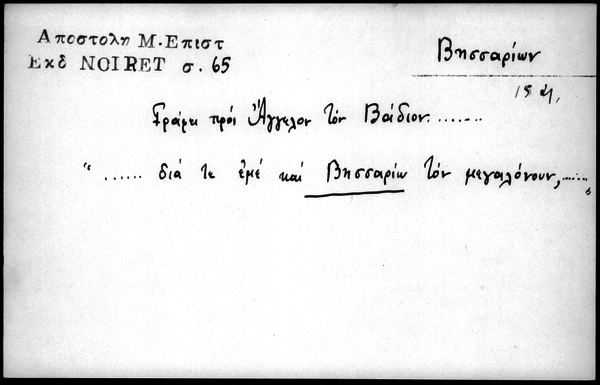 Αποστολη Μ. Επιστ
Εκδ NOIRET σ. 65
Βησσαρίων
Γράφει πρὸς Ἄγγελον τὸν Βάδιον.......
"...... διά τε ἐμέ καὶ Βησσαρίων τὸν μεγαλόνουν,......"